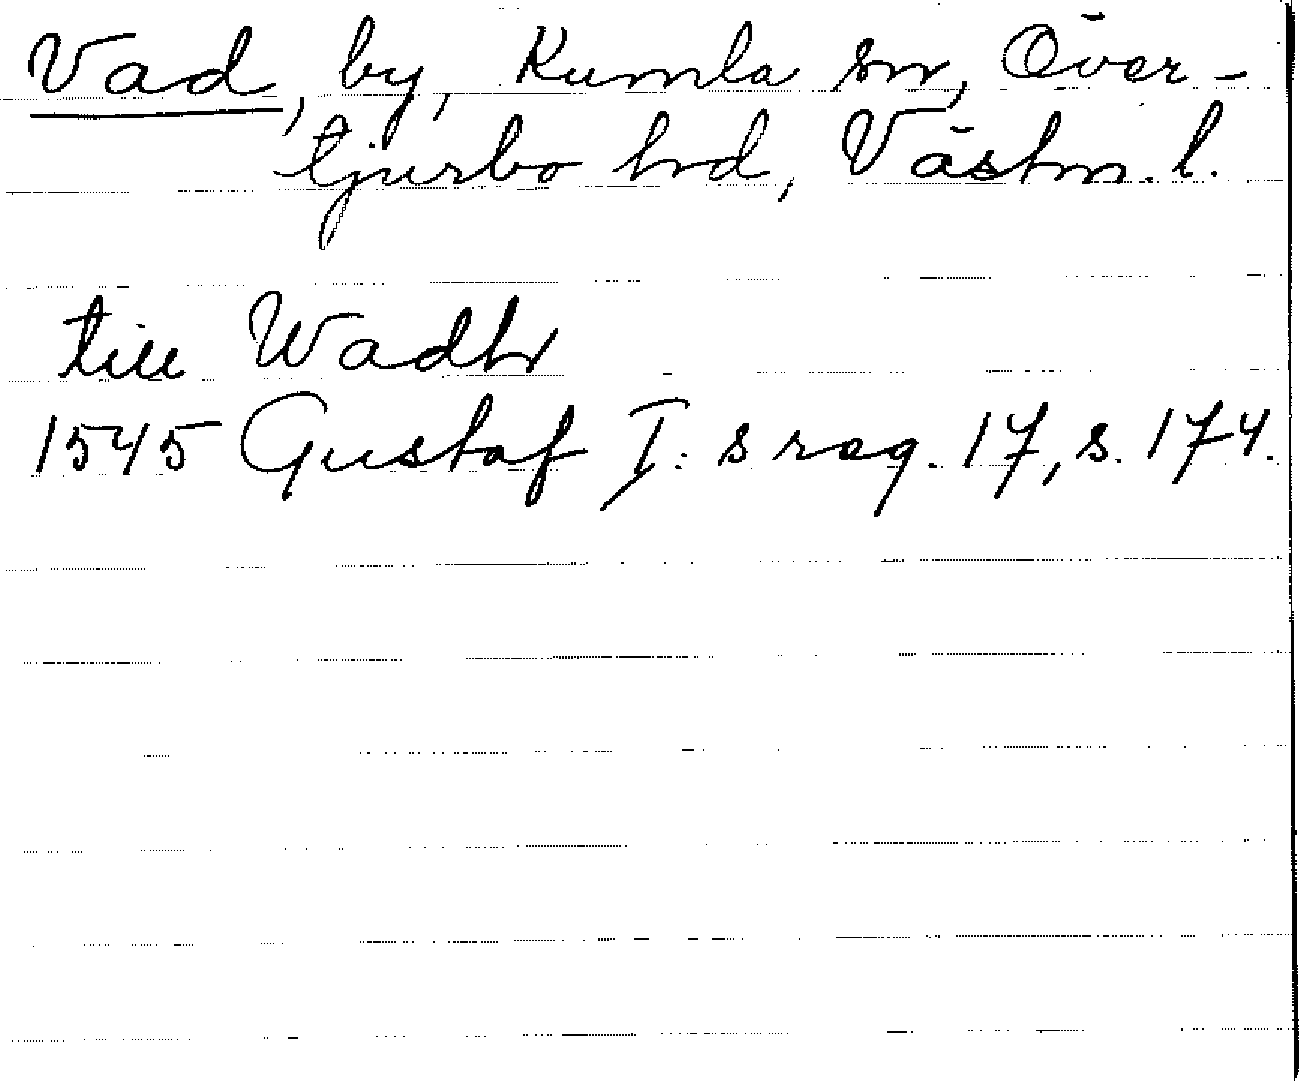 Vad, by, Kumla sn, Över-
tjurbo hd, Västm. l.
till Wadh
1545 Gustaf I:s reg. 17, s. 174.